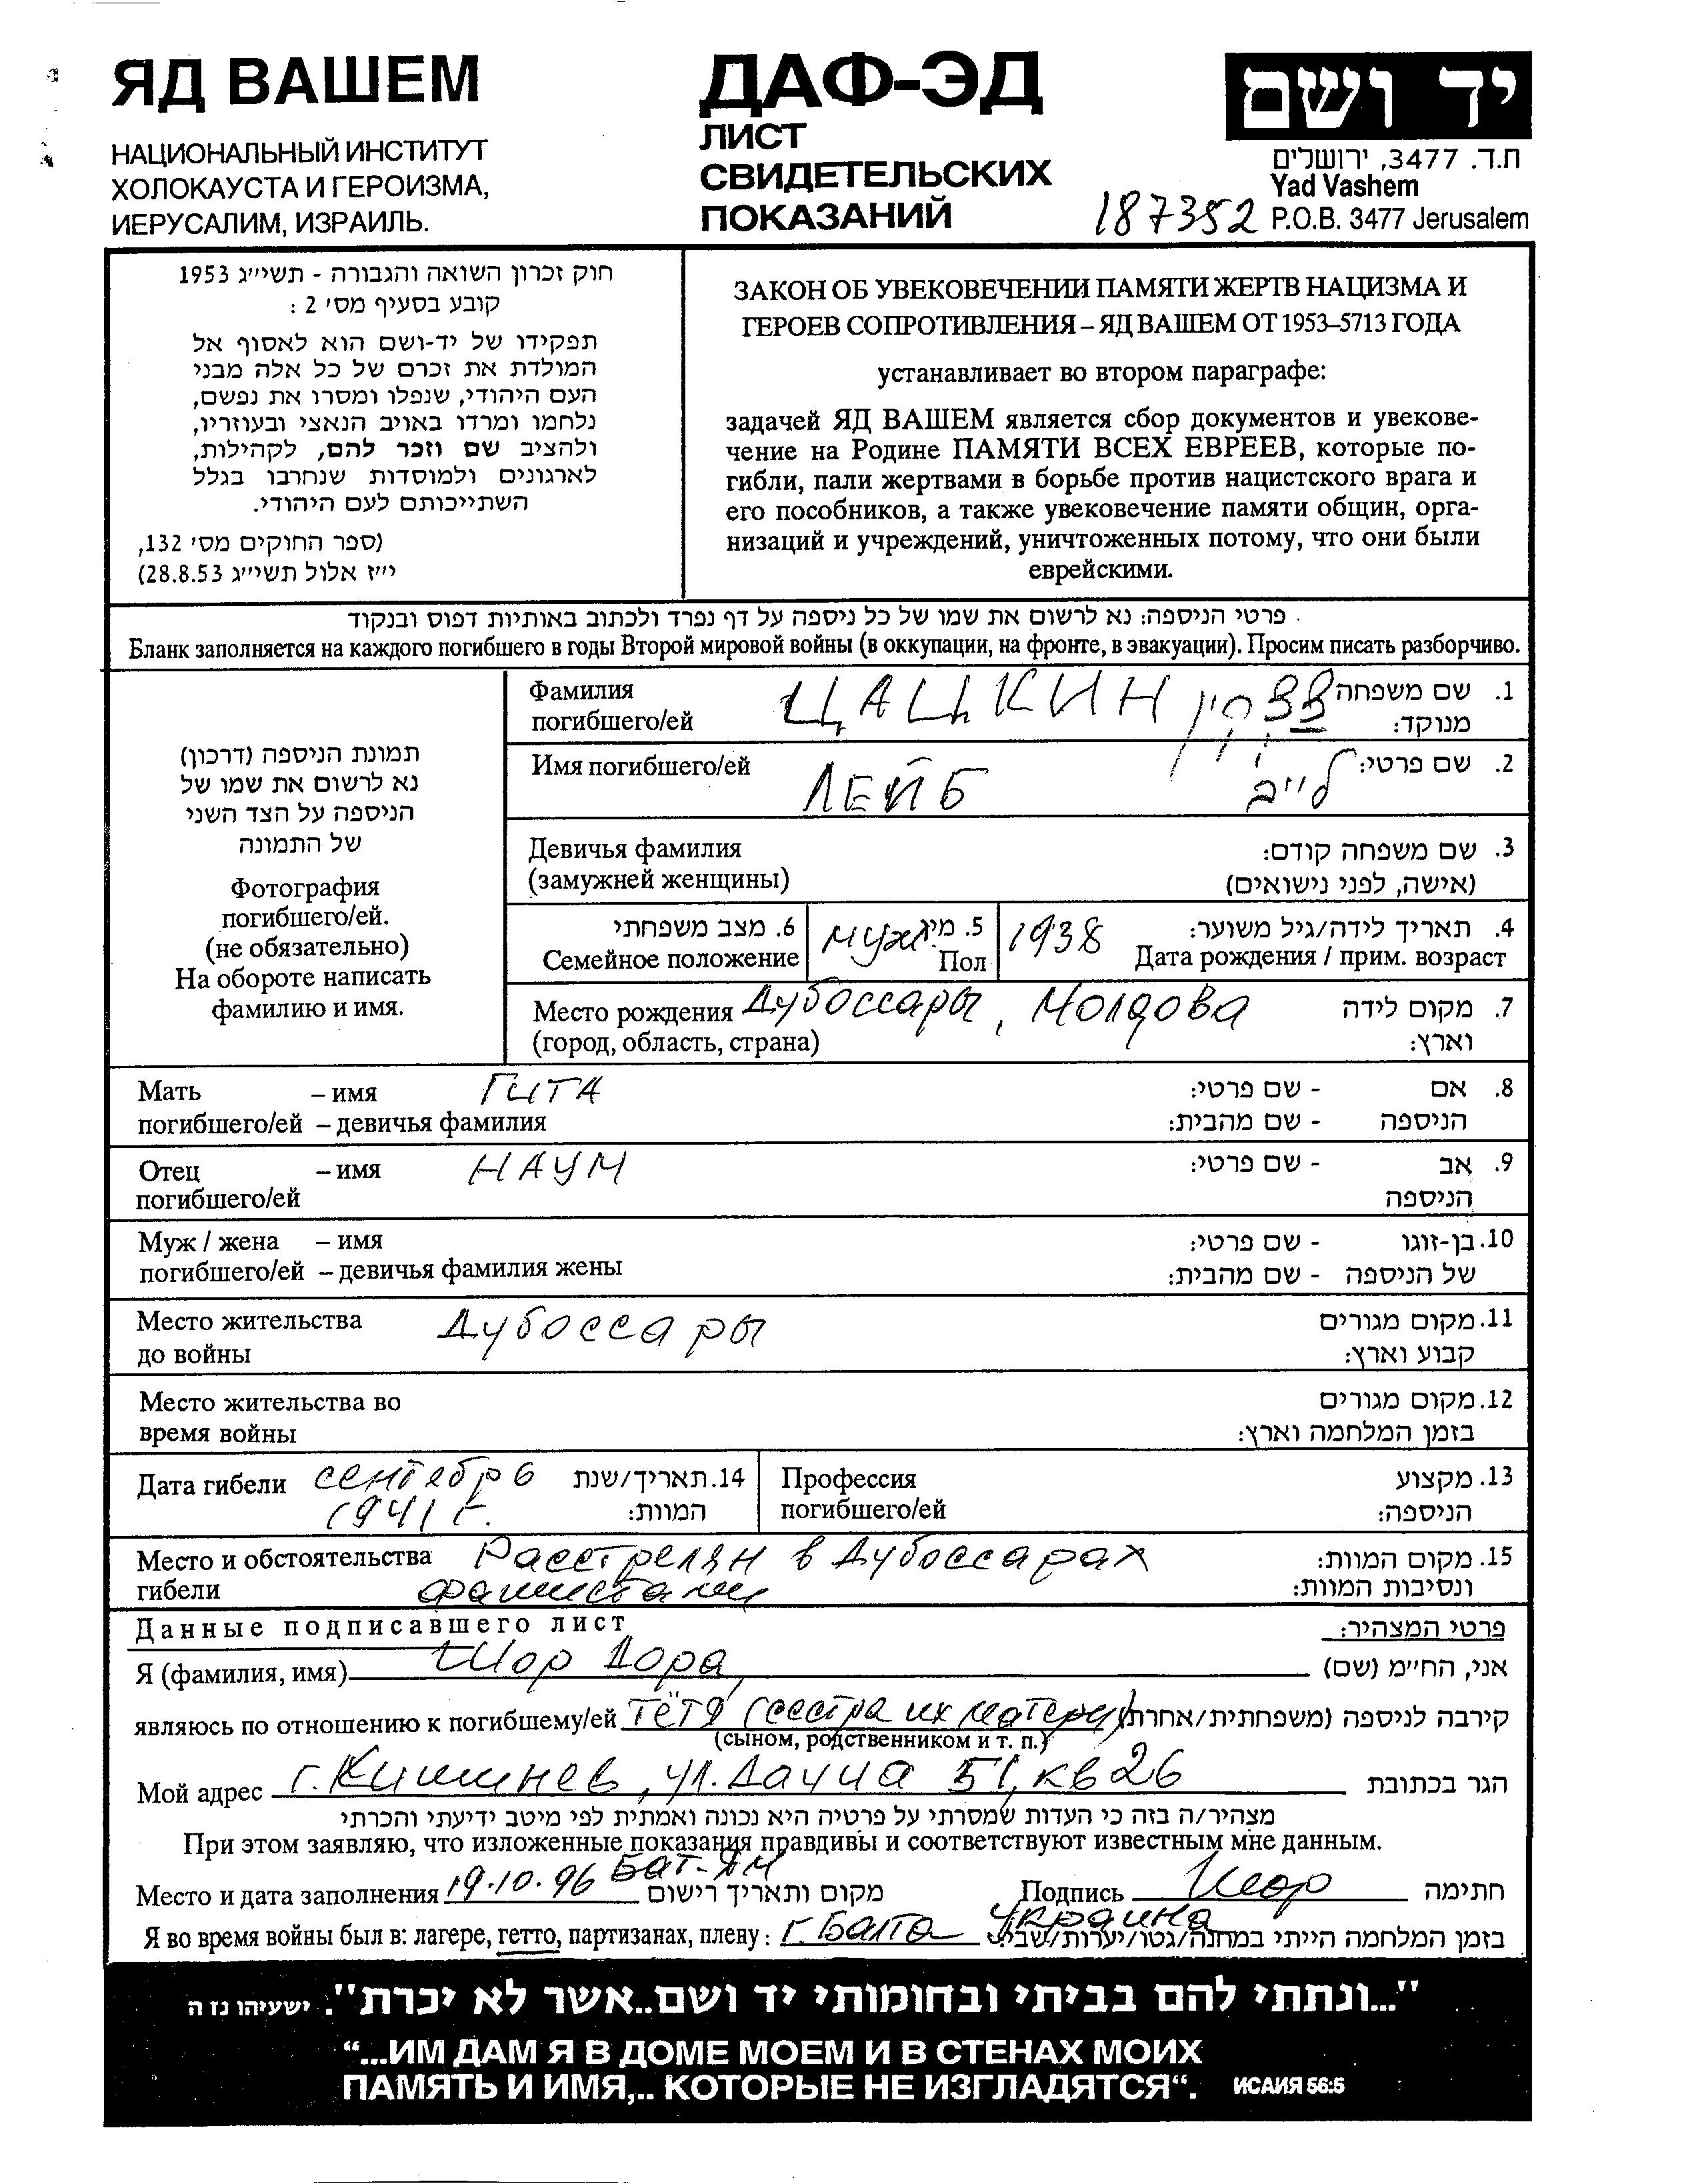 ЯД ВАШЕМ
НАЦИОНАЛЬНЫЙ ИНСТИТУТ
ХОЛОКАУСТА И ГЕРОИЗМА,
ИЕРУСАЛИМ, ИЗРАИЛЬ.
ДАФ-ЭД
ЛИСТ
СВИДЕТЕЛЬСКИХ
ПОКАЗАНИЙ
187352
יד ושם
ת.ד. 3477, ירושלים
Yad Vashem
P.O.B. 3477 Jerusalem
חוק זכרון השואה והגבורה - תשי״ג 1953
קובע בסעיף מס׳ 2 :
תפקידו של יד-ושם הוא לאסוף אל
המולדת את זכרם של כל אלה מבני
העם היהודי, שנפלו ומסרו את נפשם,
נלחמו ומרדו באויב הנאצי ובעוזריו,
ולהציב שם וזכר להם, לקהילות,
לארגונים ולמוסדות שנחרבו בגלל
השתייכותם לעם היהודי.
(ספר החוקים מס׳ 132,
י״ז אלול תשי״ג 28.8.53)
ЗАКОН ОБ УВЕКОВЕЧЕНИИ ПАМЯТИ ЖЕРТВ НАЦИЗМА И
ГЕРОЕВ СОПРОТИВЛЕНИЯ – ЯД ВАШЕМ ОТ 1953–5713 ГОДА
устанавливает во втором параграфе:
задачей ЯД ВАШЕМ является сбор документов и увекове-
чение на Родине ПАМЯТИ ВСЕХ ЕВРЕЕВ, которые по-
гибли, пали жертвами в борьбе против нацистского врага и
его пособников, а также увековечение памяти общин, орга-
низаций и учреждений, уничтоженных потому, что они были
еврейскими.
פרטי הניספה: נא לרשום את שמו של כל ניספה על דף נפרד ולכתוב באותיות דפוס ובנקוד
Бланк заполняется на каждого погибшего в годы Второй мировой войны (в оккупации, на фронте, в эвакуации). Просим писать разборчиво.
תמונת הניספה (דרכון)
נא לרשום את שמו של
הניספה על הצד השני
של התמונה
Фотография
погибшего/ей.
(не обязательно)
На обороте написать
фамилию и имя.
Фамилия ЦАЦКИН צצקין 1. שם משפחה
погибшего/ей מנוקד:
Имя погибшего/ей ЛЕЙБ לייב 2. שם פרטי:
Девичья фамилия 3. שם משפחה קודם:
(замужней женщины) (אישה, לפני נישואים)
6. מצב משפחתי
Семейное положение
муж 5. מין
Пол
1938 4. תאריך לידה/גיל משוער:
Дата рождения / прим. возраст
Место рождения Дубоссары, Молдова 7. מקום לידה
(город, область, страна) וארץ:
Мать – имя ГИТА 8. אם - שם פרטי:
погибшего/ей – девичья фамилия הניספה - שם מהבית:
Отец – имя НАУМ 9. אב - שם פרטי:
погибшего/ей הניספה
Муж / жена – имя 10. בן-זוגו - שם פרטי:
погибшего/ей – девичья фамилия жены של הניספה - שם מהבית:
Место жительства Дубоссары 11. מקום מגורים
до войны קבוע וארץ:
Место жительства во 12. מקום מגורים
время войны בזמן המלחמה וארץ:
Дата гибели сентябрь 14. תאריך/שנת
1941 г. המוות:
Профессия 13. מקצוע
погибшего/ей הניספה:
Место и обстоятельства Расстрелян в Дубоссарах 15. מקום המוות:
гибели фашистами ונסיבות המוות:
Данные подписавшего лист פרטי המצהיר:
Я (фамилия, имя) Шор Дора אני, הח״מ (שם)
являюсь по отношению к погибшему/ей тётя (сестра их матери) קירבה לניספה (משפחתית/אחרת)
(сыном, родственником и т. п.)
Мой адрес г. Кишинев, ул. Дачиа 51, кв 26 הגר בכתובת
מצהיר/ה בזה כי העדות שמסרתי על פרטיה היא נכונה ואמתית לפי מיטב ידיעתי והכרתי
При этом заявляю, что изложенные показания правдивы и соответствуют известным мне данным.
Место и дата заполнения 19.10.96 БАТ-ЯМ מקום ותאריך רישום Подпись Шор חתימה
Я во время войны был в: лагере, гетто, партизанах, плену: г. Балта Украина בזמן המלחמה הייתי במחנה/גטו/יערות/שבי:
״...ונתתי להם בביתי ובחומותי יד ושם..אשר לא יכרת״. ישעיהו נז ה
“...ИМ ДАМ Я В ДОМЕ МОЕМ И В СТЕНАХ МОИХ
ПАМЯТЬ И ИМЯ,.. КОТОРЫЕ НЕ ИЗГЛАДЯТСЯ“. ИСАИЯ 56:5